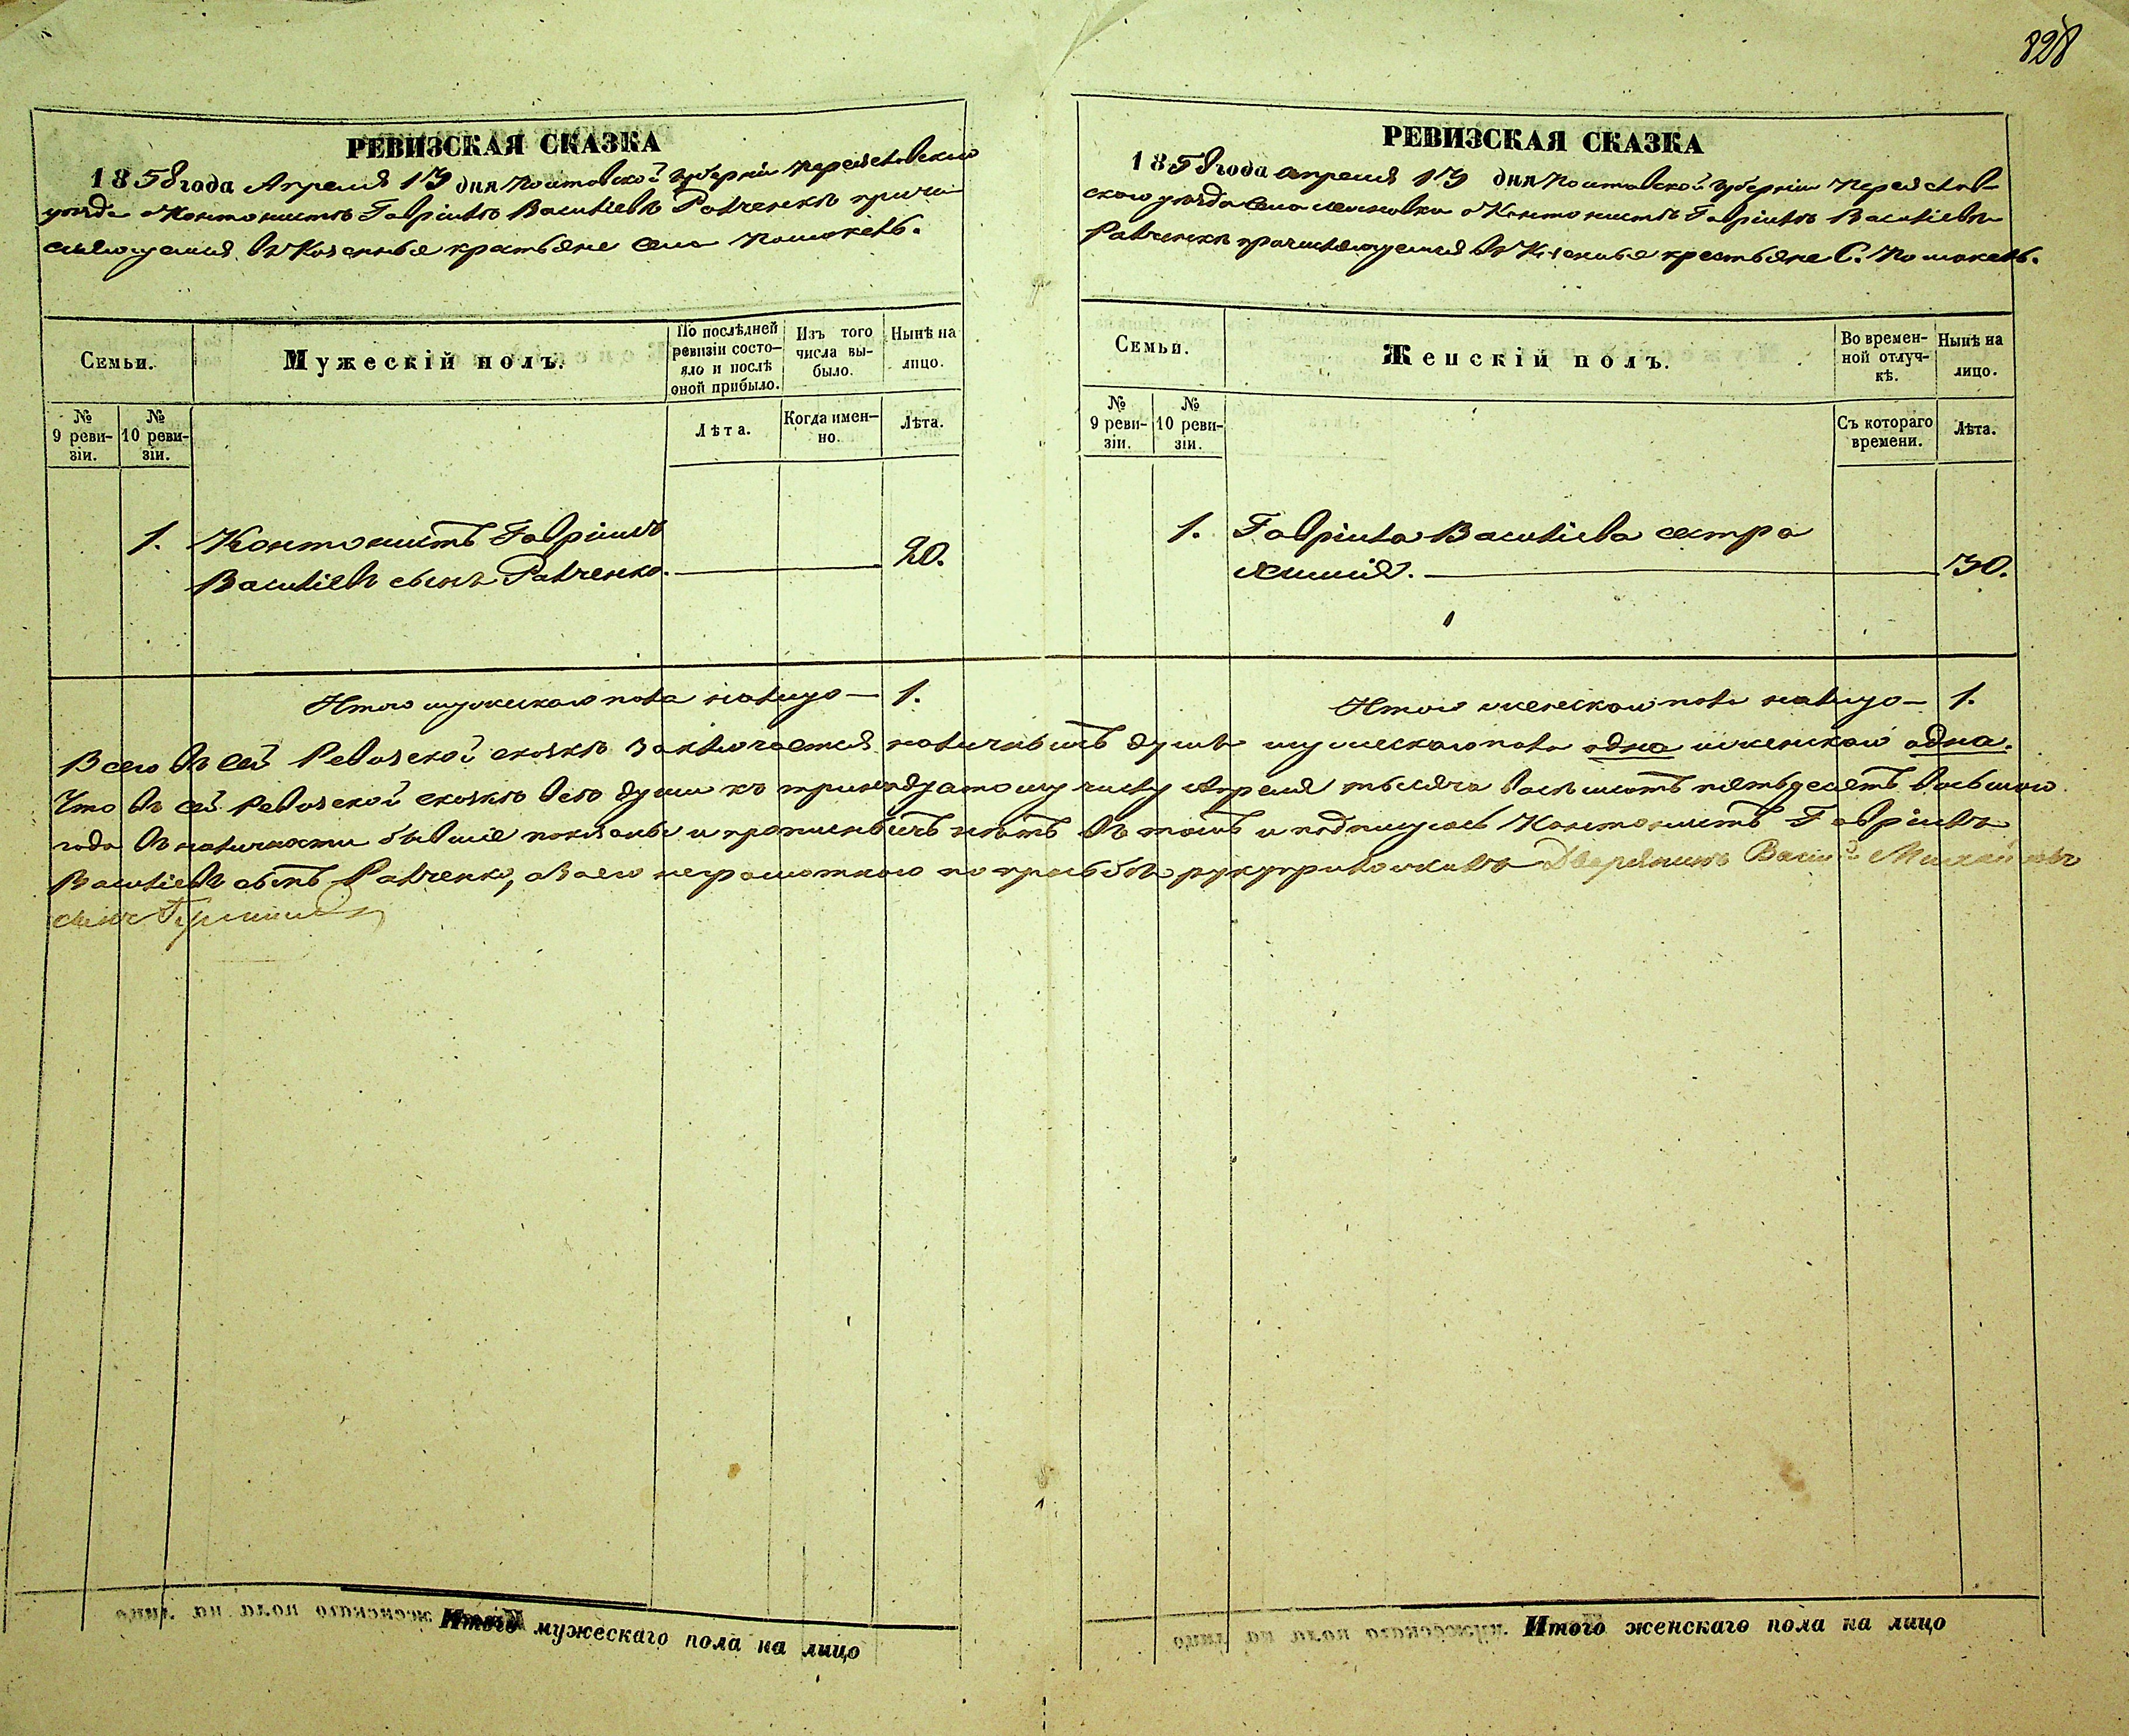 828
РЕВИЗСКАЯ СКАЗКА
1858 года Апреля 13 дня Полтавской Губерніи Переяславскаго
уезда о Кантонисте Гавріиле Васильеве Равченке причи-
сляющемся въ Казенные крестьяне села
Семьи.
Мужескій полъ.
По послѣдней ревизіи состо-
яло и послѣ оной прибыло.
Изъ того числа вы-
было.
Нынѣ на лицо.
№ 9 реви-
зіи.
№ 10 реви-
зіи.
Лѣта.
Когда имен-
но.
Лѣта.
1. Кантонистъ Гавріилъ
Васильевъ сынъ Равченко. 20.
Итого мужескаго пола налицо — 1.
РЕВИЗСКАЯ СКАЗКА
1858 года апреля 13 дня Полтавской Губерніи Переяслав-
скаго уезда села о Кантонисте Гавріиле Васильеве
Равченке причисляющемся въ Казенные крестьяне С.
Семьи.
Женскій полъ.
Во времен-
ной отлуч-
кѣ.
Нынѣ на лицо.
№ 9 реви-
зіи.
№ 10 реви-
зіи.
Съ котораго времени.
Лѣта.
1. Гавріила Васильева сестра
30.
Итого женскаго пола налицо — 1.
Всего въ сей Ревизской сказкѣ заключается наличныхъ душъ мужескаго пола одна и женскаго одна.
Что въ сей Ревизской сказкѣ все души къ тринадцатому числу Апреля тысяча восемьсотъ пятьдесятъ восьмаго
года въ наличности бывшіе показаны и прописныхъ нѣтъ въ томъ и подписуюсь Кантонистъ Гавріилъ
Васильевъ сынъ Равченко, а за его неграмотнаго по прозьбѣ руку приложилъ Дворянинъ
сынъ
Итого мужескаго пола на лицо
Итого женскаго пола на лицо